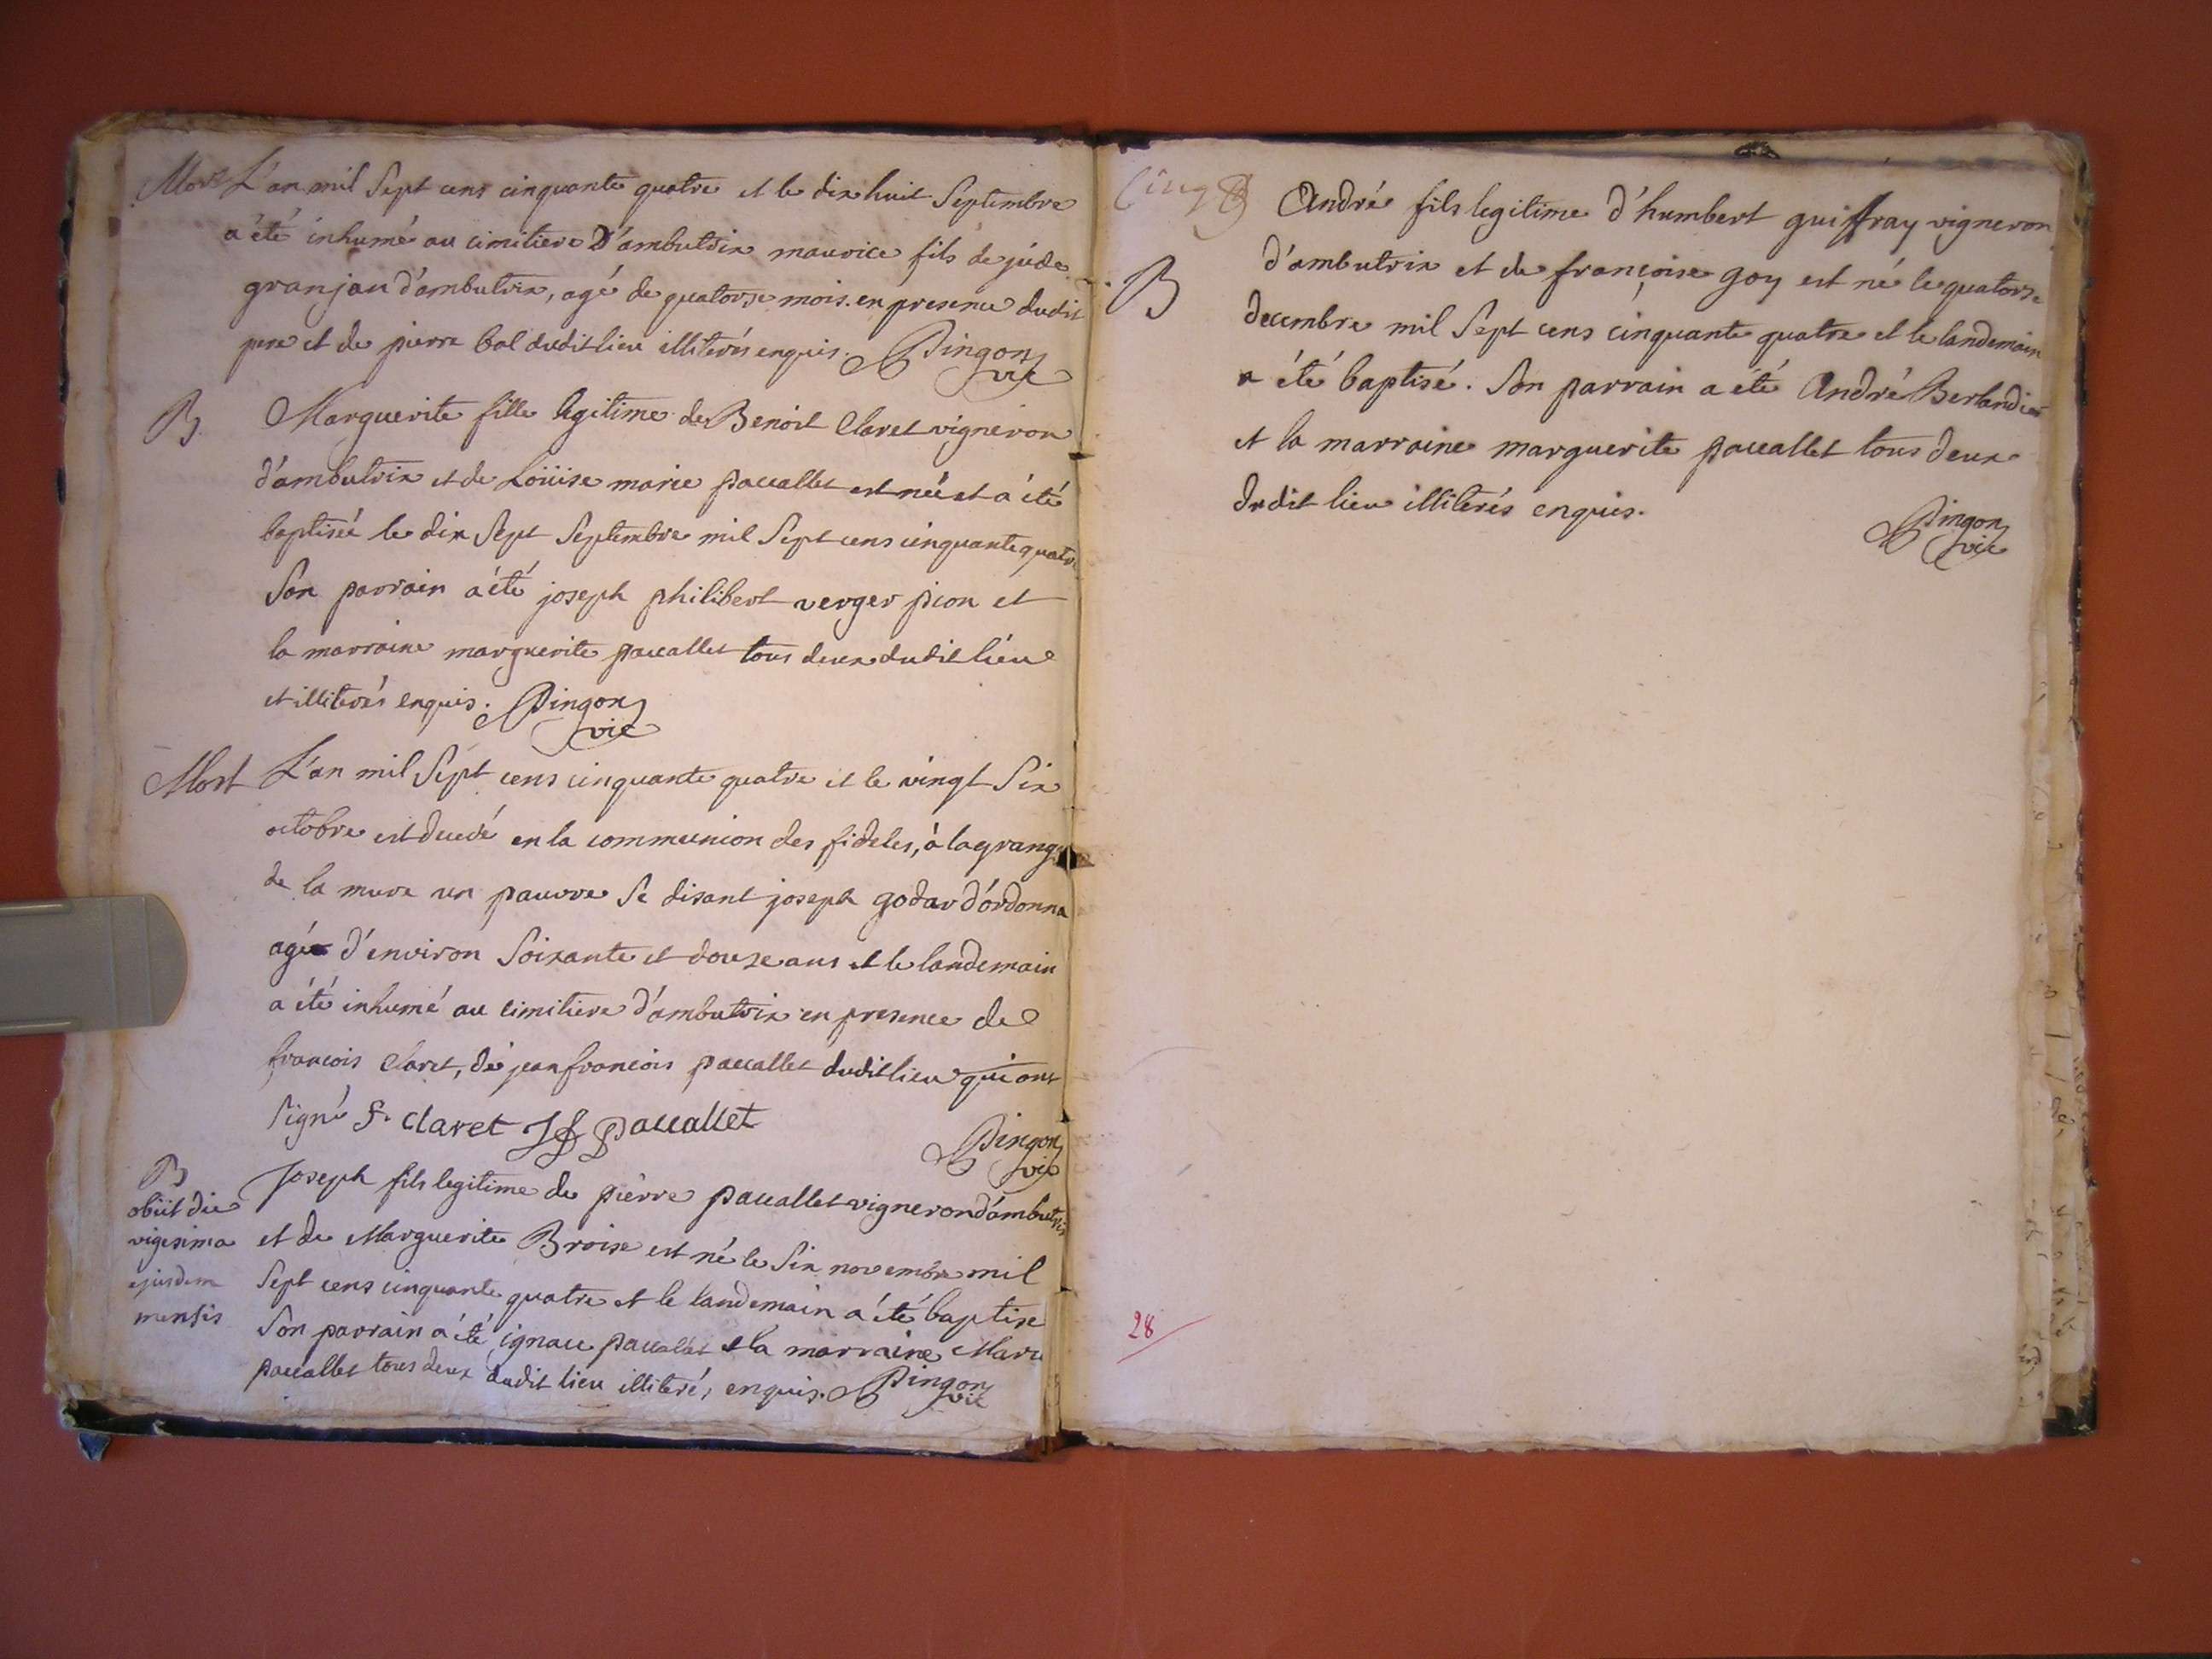 Mort L'an mil Sept cens cinquante quatre et le dix huit Septembre
a été inhumé au cimitiere D'ambutrix maurice fils de jude
granjan d'ambutrix, agé de quatorze mois. en presence dudit
pere et de pierre bal dudit lieu illiterés enquis. Pingon
vic
B Marguerite fille legitime de Benoit Claret vigneron
d'ambutrix et de Loüise marie paccallet est née et a été
baptisée le dix Sept Septembre mil Sept cens cinquante quatre
Son parrain a été joseph philibert verger pion et
la marraine marguerite paccallet tous deux dudit lieu
et illiterés enquis. Pingon
vic
Mort L'an mil Sept cens cinquante quatre et le vingt Six
octobre est decedé en la communion des fideles, à la grange
de la mure un pauvre Se disant joseph godar d'ordonna
agé d'environ Soixante et douze ans et le landemain
a été inhumé au cimitiere d'ambutrix en presence de
francois Claret, de jean francois paccallet dudit lieu qui ont
signé F. claret J f paccallet
Pingon
vic
B Joseph fils legitime de pierre paccallet vigneron d'ambutrix
obiit die
vigesima et de Marguerite Broise est né le Six novembre mil
ejusdem Sept cens cinquante quatre et le landemain a été baptise
mensis Son parrain a été ignace paccallet et la marraine Marie
paccallet tous deux dudit lieu illiterés enquis. Pingon
vic
Cinq
André fils legitime d'humbert guiffray vigneron
B d'ambutrix et de françoise goy est né le quatorze
decembre mil Sept cens cinquante quatre et le landemain
a été baptisé. Son parrain a été André Berlandier
et la marraine marguerite paccallet tous deux
dudit lieu illiterés enquis.
Pingon
vic
28